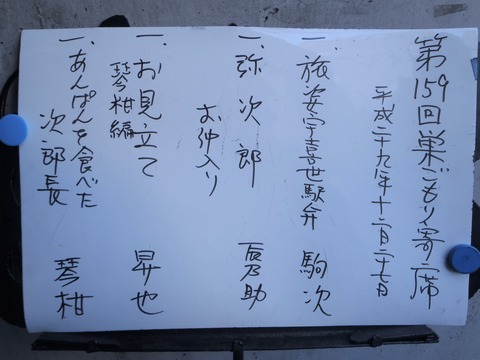 第159回巣ごもり寄席
平成二十九年十二月二十七日
一、旅姿宇喜世駅弁 駒次
一、弥次郎 夏乃助
お仲入り
一、お見立て 昇也
琴柑編
一、あんぱんを食べた
次郎長 琴柑